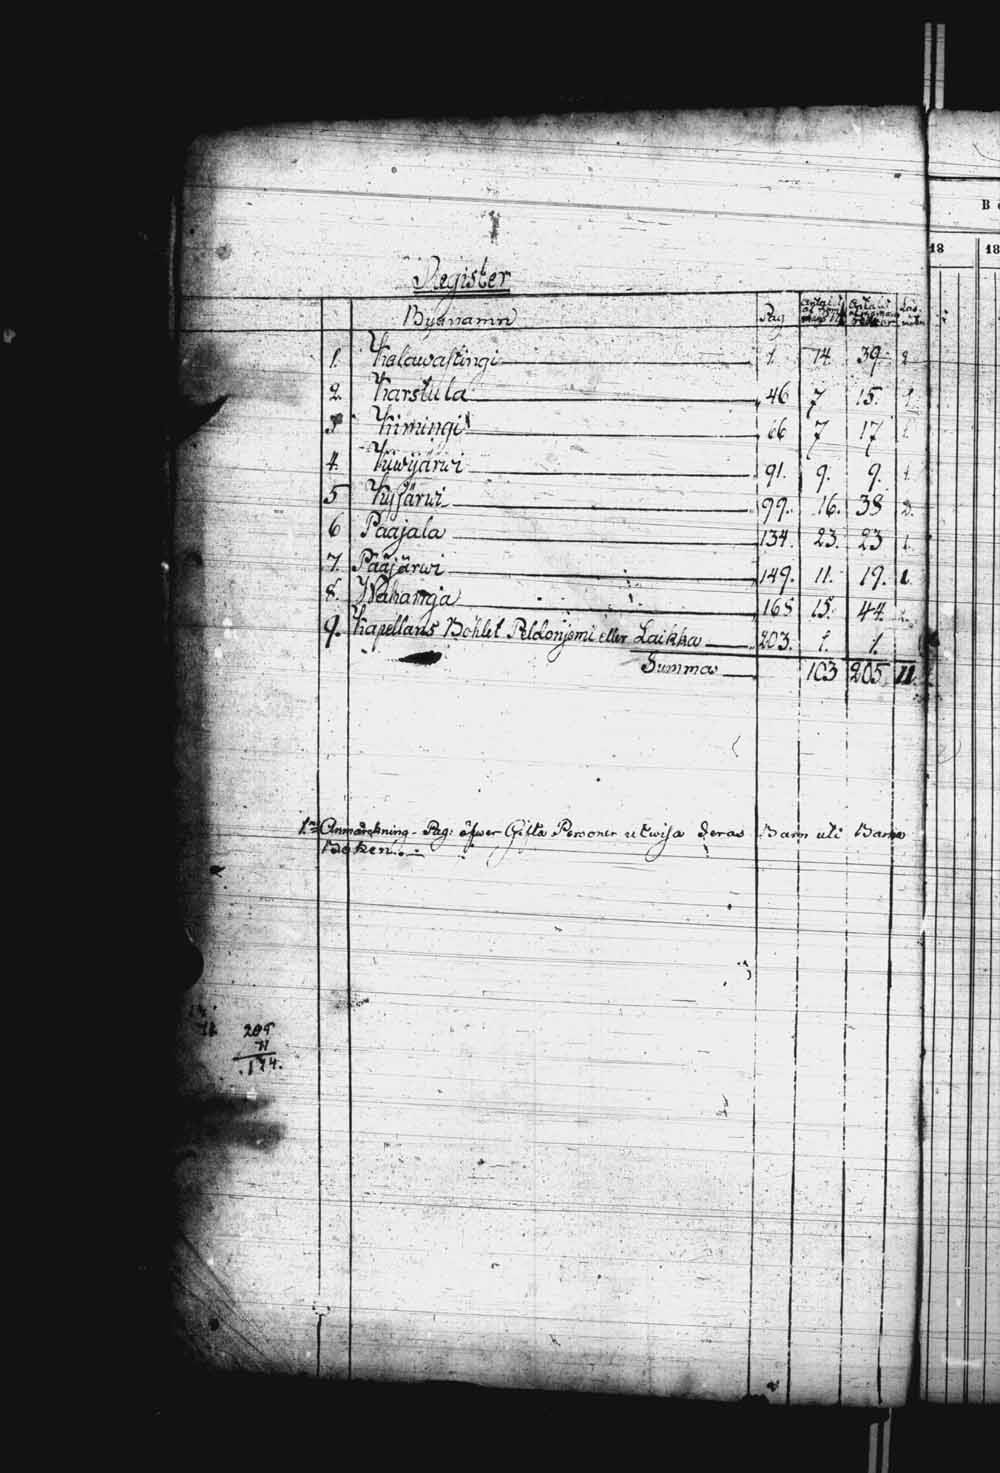 Register
Bynamn Pag Antalet Antalet
1. Kalawastingi 1. 14. 39.
2. Karstula 46 7 15.
3 Kimingi 66 7 17
4. Kiwijärwi 91. 9. 9.
5 Kyyjärwi 99. 16. 38
6 Paajala 134. 23. 23 1.
7. Pääjärwi 149. 11. 19. 1.
8. Wahanga 168 15. 44.
9. Kapellans Bohlet Peldoniemi eller Laikka 203. 1. 1.
Summa 103 205 11
Anmärckning - Pag: öfwer Gifta Personer utwisa deras Barn uti Barna
Boken.
205
11
194.
B
18 18